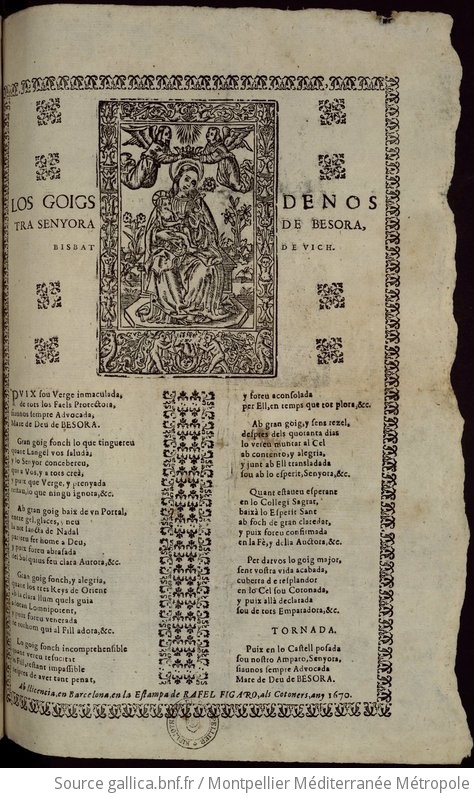 LOS GOIGS DENOS
TRA SENYORA DE BESORA,
BISBAT DE VICH.
PVIX sou Verge inmaculada,
de tots los Faels Protectora,
siaunos sempre Advocada,
Mare de Deu de BESORA.
Gran goig fonch lo que tinguereu
quant Langel vos saludà,
y lo Senyor concebereu,
que a Vos, y a tots creà,
y puix que Verge, y prenyada
restau, lo que ningu ignora, &c.
Ab gran goig baix de vn Portal,
entre gel, glaces, y neu
la nit sancta de Nadal
ser home a Deu,
y puix foreu abrasada
feu clara Aurora, &c.
Gran goig fonch, y alegria,
quant los tres Reys de Orient
ab la clara llum quels guia
Lomnipotent,
y puix foreu venerada
al Fill adora, &c.
Lo goig fonch incomprehensible
quant vereu resucitat
Fill, estant impassible
apres de aver tant penat,
y foreu aconsolada
per Ell, en temps que tot plora, &c.
Ab gran goig, y sens rezel,
despres dels quoranta dias
lo vereu muntar al Cel
ab contento, y alegria,
y junt ab Ell transladada
sou ab lo esperit, Senyora, &c.
Quant estaueu esperant
en lo Collegi Sagrat,
baixà lo Esperit Sant
ab foch de gran claredat,
y puix foreu confirmada
en la Fè, y della Auctora, &c.
Per darvos lo goig major,
sent vostra vida acabada,
cuberta de resplandor
en lo Cel sou Coronada,
y puix allà declarada
sou de tots Emparadora, &c.
TORNADA.
Puix en lo Castell posada
sou nostro Amparo, Senyora,
siaunos sempre Advocada
Mare de Deu de BESORA.
Ab llicencia, en Barcelona, en la Estampa de RAFEL FIGARO, als Cotoners, any 1670.
Source gallica.bnf.fr / Montpellier Méditerranée Métropole